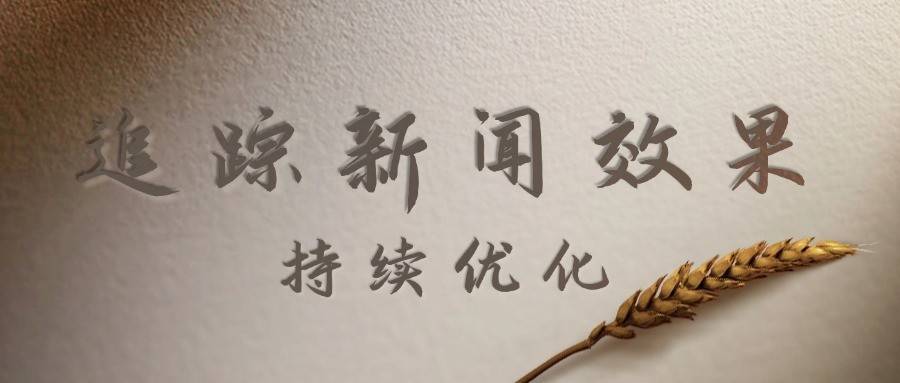 追踪新闻效果
持续优化